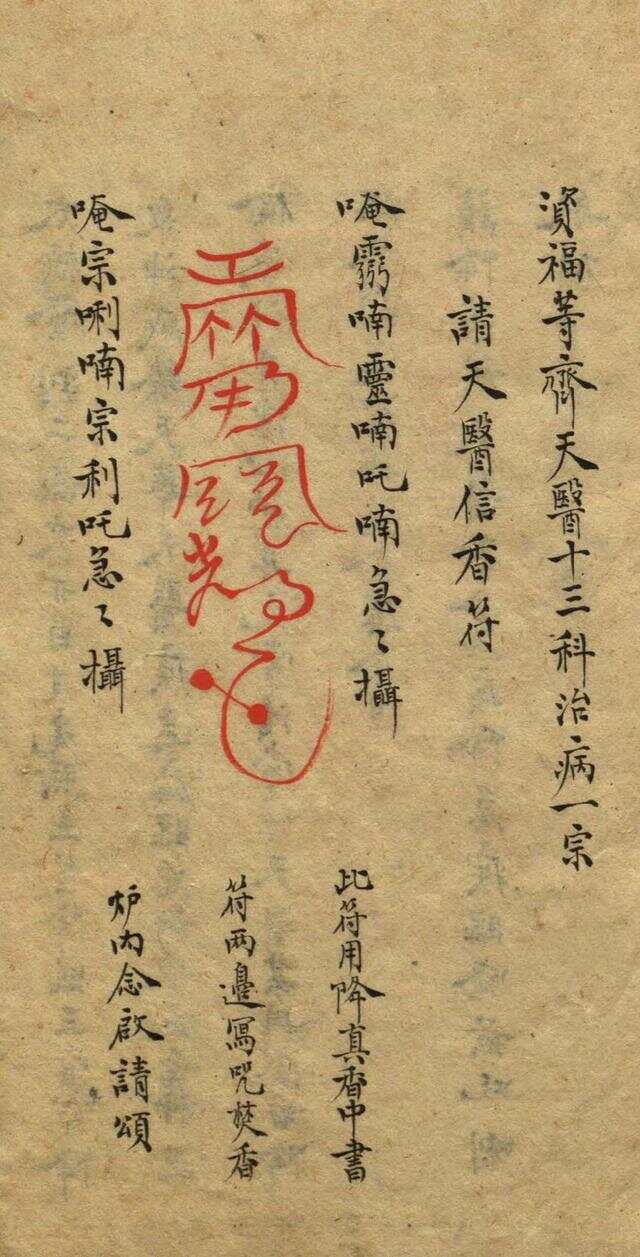 資福等齊天醫十三科治病一宗
請天醫信香符
唵霛喃靈喃吒喃急々攝
唵宗唎喃宗利吒急々攝
此符用降真香中書
符两邉寫咒焚香
炉内念啟請頌